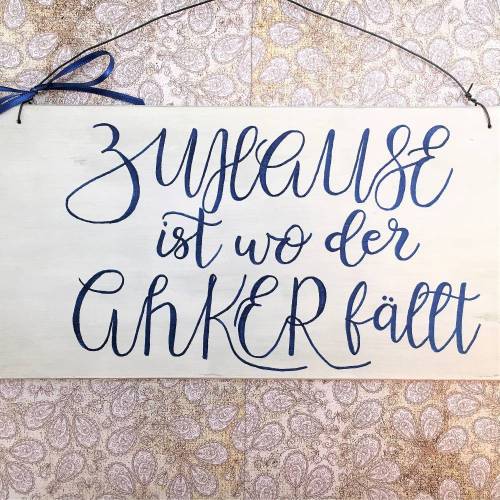 ZUHAUSE
ist wo der
ANKER fällt